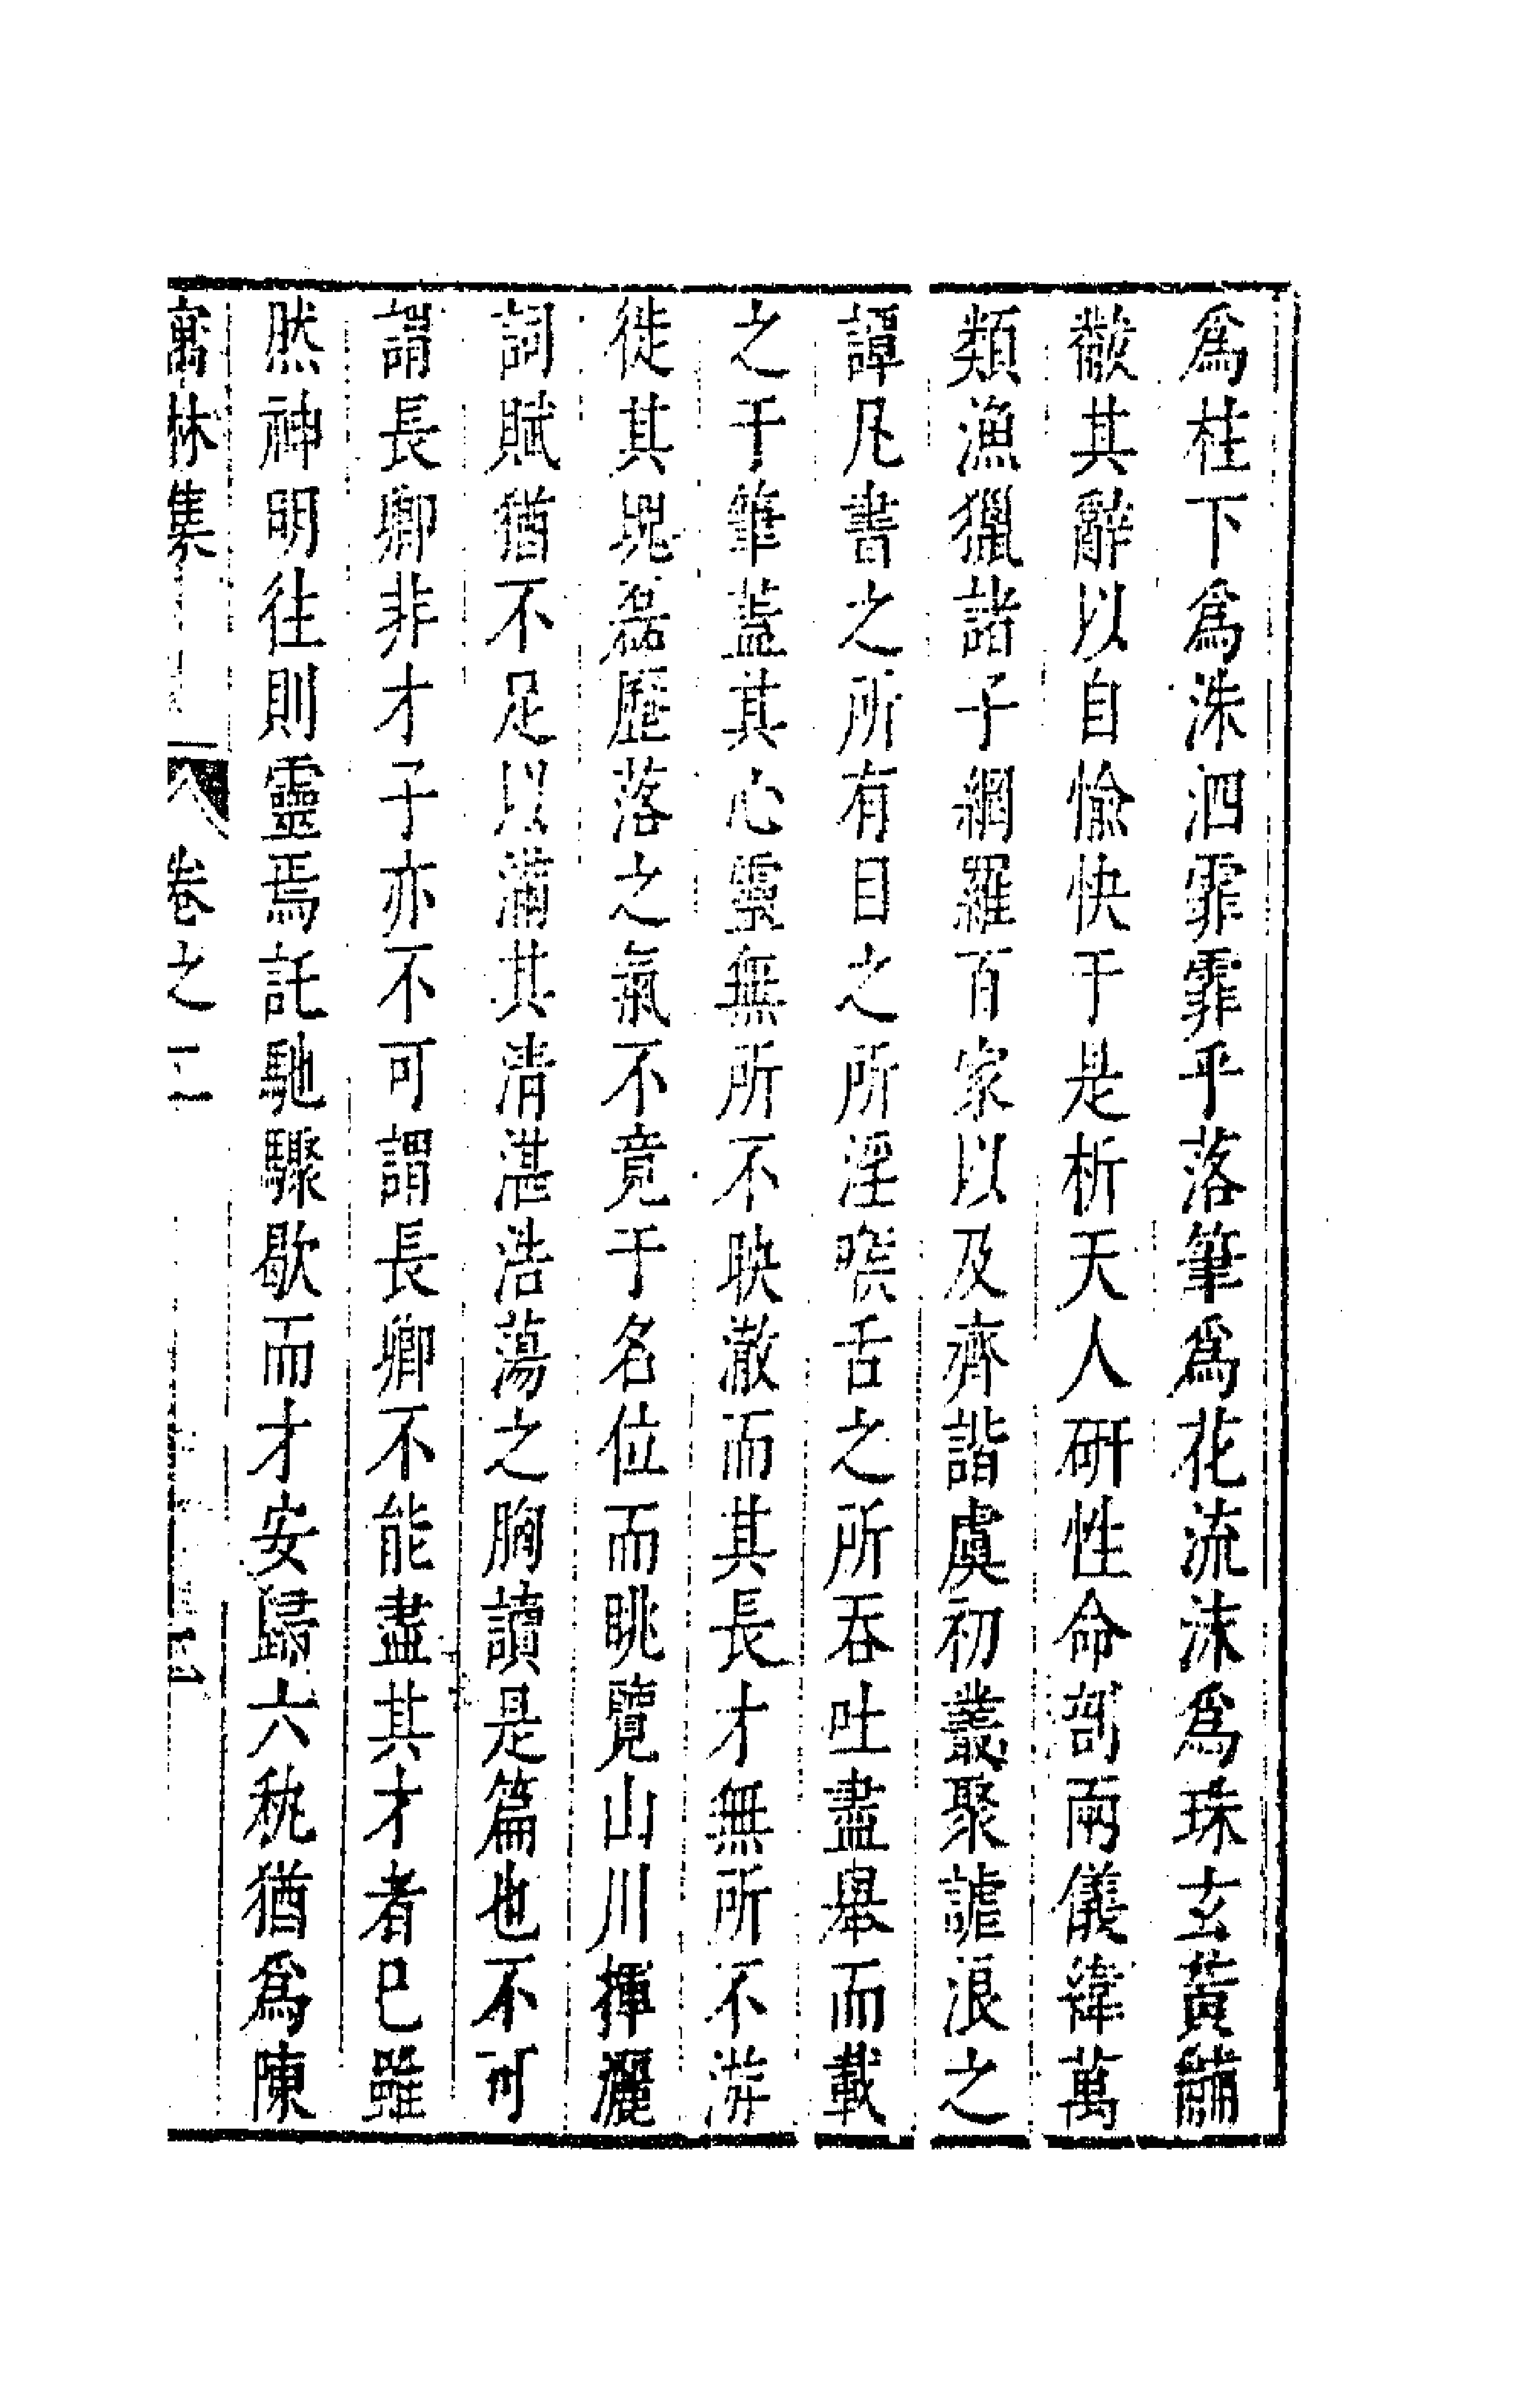 為桂下為洙泗霏霏乎落筆為花流沫為珠玄黃黼
黻其辭以自愉快于是析天人研性命剖兩儀緯萬
類漁獵諸子網羅百家以及齊諧虞初叢聚謔浪之
譚凡書之所有目之所淫喉舌之所吞吐盡舉而載
之于筆葢其心靈無所不映澈而其長才無所不游
徙其塊磊歷落之氣不竟于名位而眺覽山川揮灑
詞賦猶不足以滿其清湛浩蕩之胸讀是篇也不可
謂長卿非才子亦不可謂長卿不能盡其才者已雖
然神明往則靈焉託馳驟歇而才安歸六秇猶為陳
寓林集 卷之二